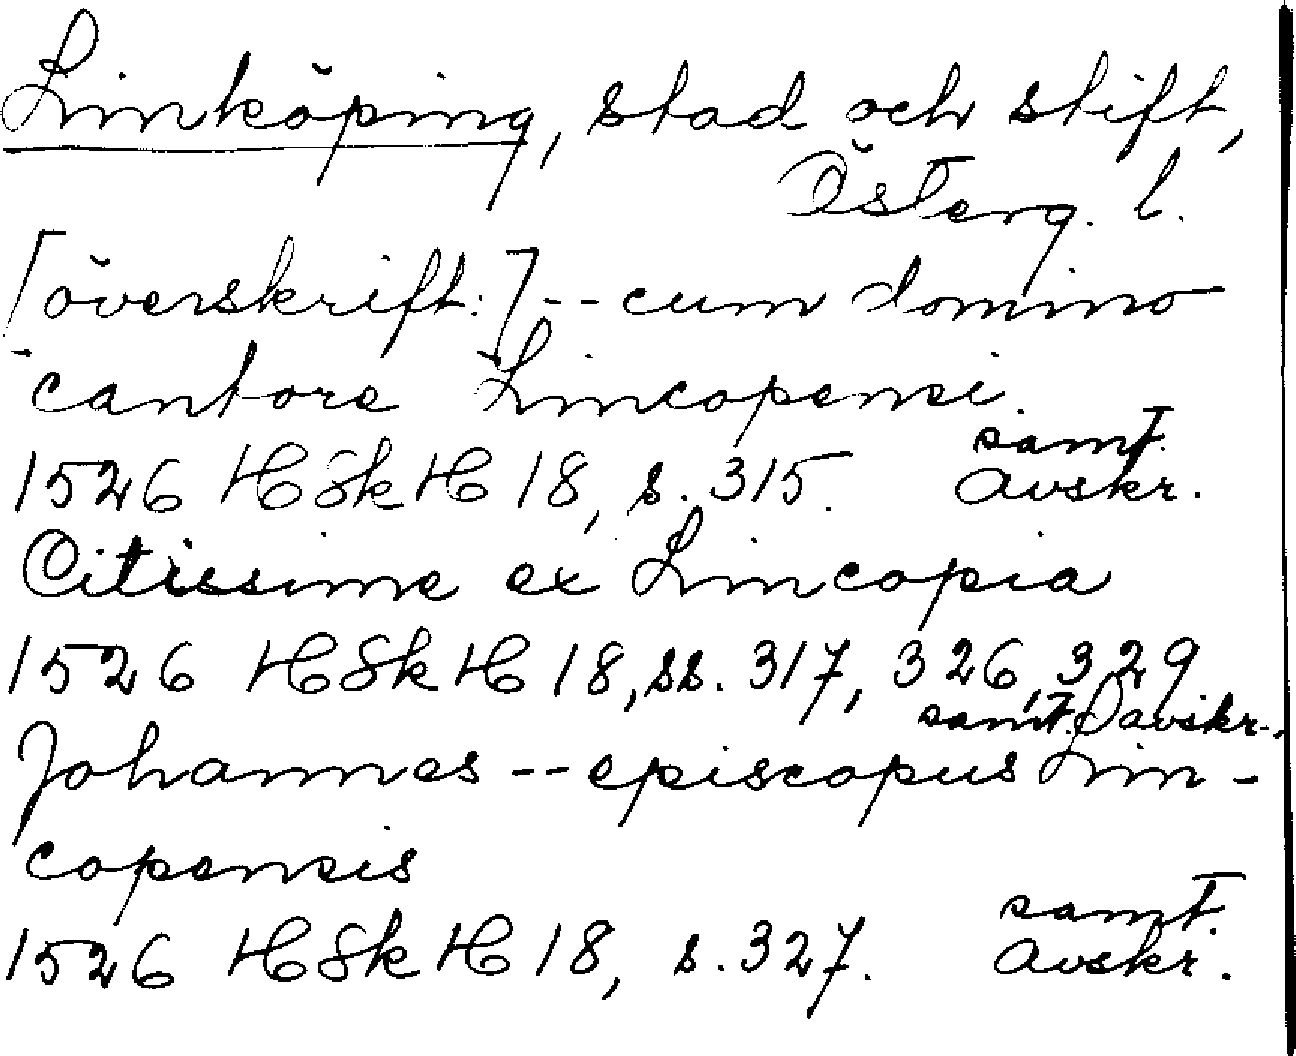 Linköping, stad och stift,
Österg. l.
[överskrift:] -- cum domino
cantore Lincopensi.
1526 HSkH 18, s. 315. samt. avskr.
Citissime ex Lincopia
1526 HSkH 18, ss. 317, 326, 329
samt. avskr.
Johannes -- episcopus Lin-
copensis
1526 HSkH 18, s. 327. samt. avskr.